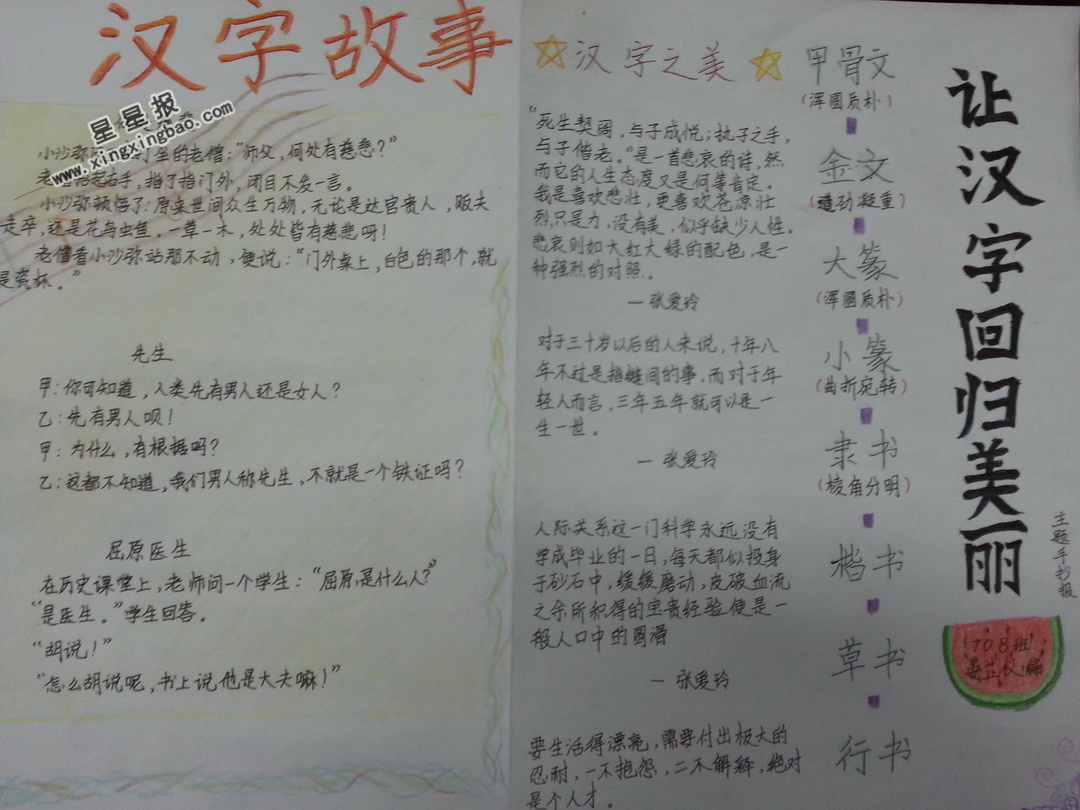 汉字故事
星星报
www.xingxingbao.com
小沙弥 打坐的老僧：“师父，何处有慈悲？”
老 右手，指了指门外，闭目不发一言。
小沙弥顿悟了：原来世间众生万物，无论是达官贵人，贩夫
走卒，还是花鸟虫鱼，一草一木，处处皆有慈悲呀！
老僧看小沙弥站那不动，便说：“门外桌上，白色的那个，就
是瓷杯。”
先生
甲：你可知道，人类先有男人还是女人？
乙：先有男人呗！
甲：为什么，有根据吗？
乙：这都不知道，我们男人称先生，不就是一个铁证吗？
屈原医生
在历史课堂上，老师问一个学生：“屈原是什么人？”
“是医生。”学生回答。
“胡说！”
“怎么胡说呢，书上说他是大夫嘛！”
汉字之美
“死生契阔，与子成悦；执子之手，
与子偕老。”是一首悲哀的诗，然
而它的人生态度又是何等肯定。
我是喜欢悲壮，更喜欢苍凉壮
烈只是力，没有美，似乎缺少人性。
悲哀则如大红大绿的配色，是一
种强烈的对照。
—张爱玲
对于三十岁以后的人来说，十年八
年不过是指缝间的事，而对于年
轻人而言，三年五年就可以是一
生一世。
—张爱玲
人际关系这一门科学永远没有
学成毕业的一日，每天都似投身
于砂石中，缓缓磨动，皮破血流
之余所积得的宝贵经验便是一
般人口中的圆滑
—张爱玲
要生活得漂亮，需要付出极大的
忍耐，一不抱怨，二不解释，绝对
是个人才。
甲骨文
（浑圆质朴）
金文
（遒劲凝重）
大篆
（浑圆质朴）
小篆
（曲折宛转）
隶书
（棱角分明）
楷书
草书
行书
让汉字回归美丽
主题手抄报
708班
编